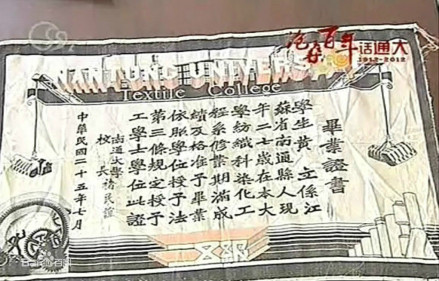 滄桑百年
話通大
1912-2012
NANTUNG UNIVERS
Textile College
畢業證書
學生黃 立係江
蘇省南通縣人現
年二七歲在本大
學紡織科染化工
程系修業期滿成
績及格准予畢業
依照學位授予法
第三條規定授予
工學士學位此證
南通大學
校長褚民誼
中華民國二十五年七月